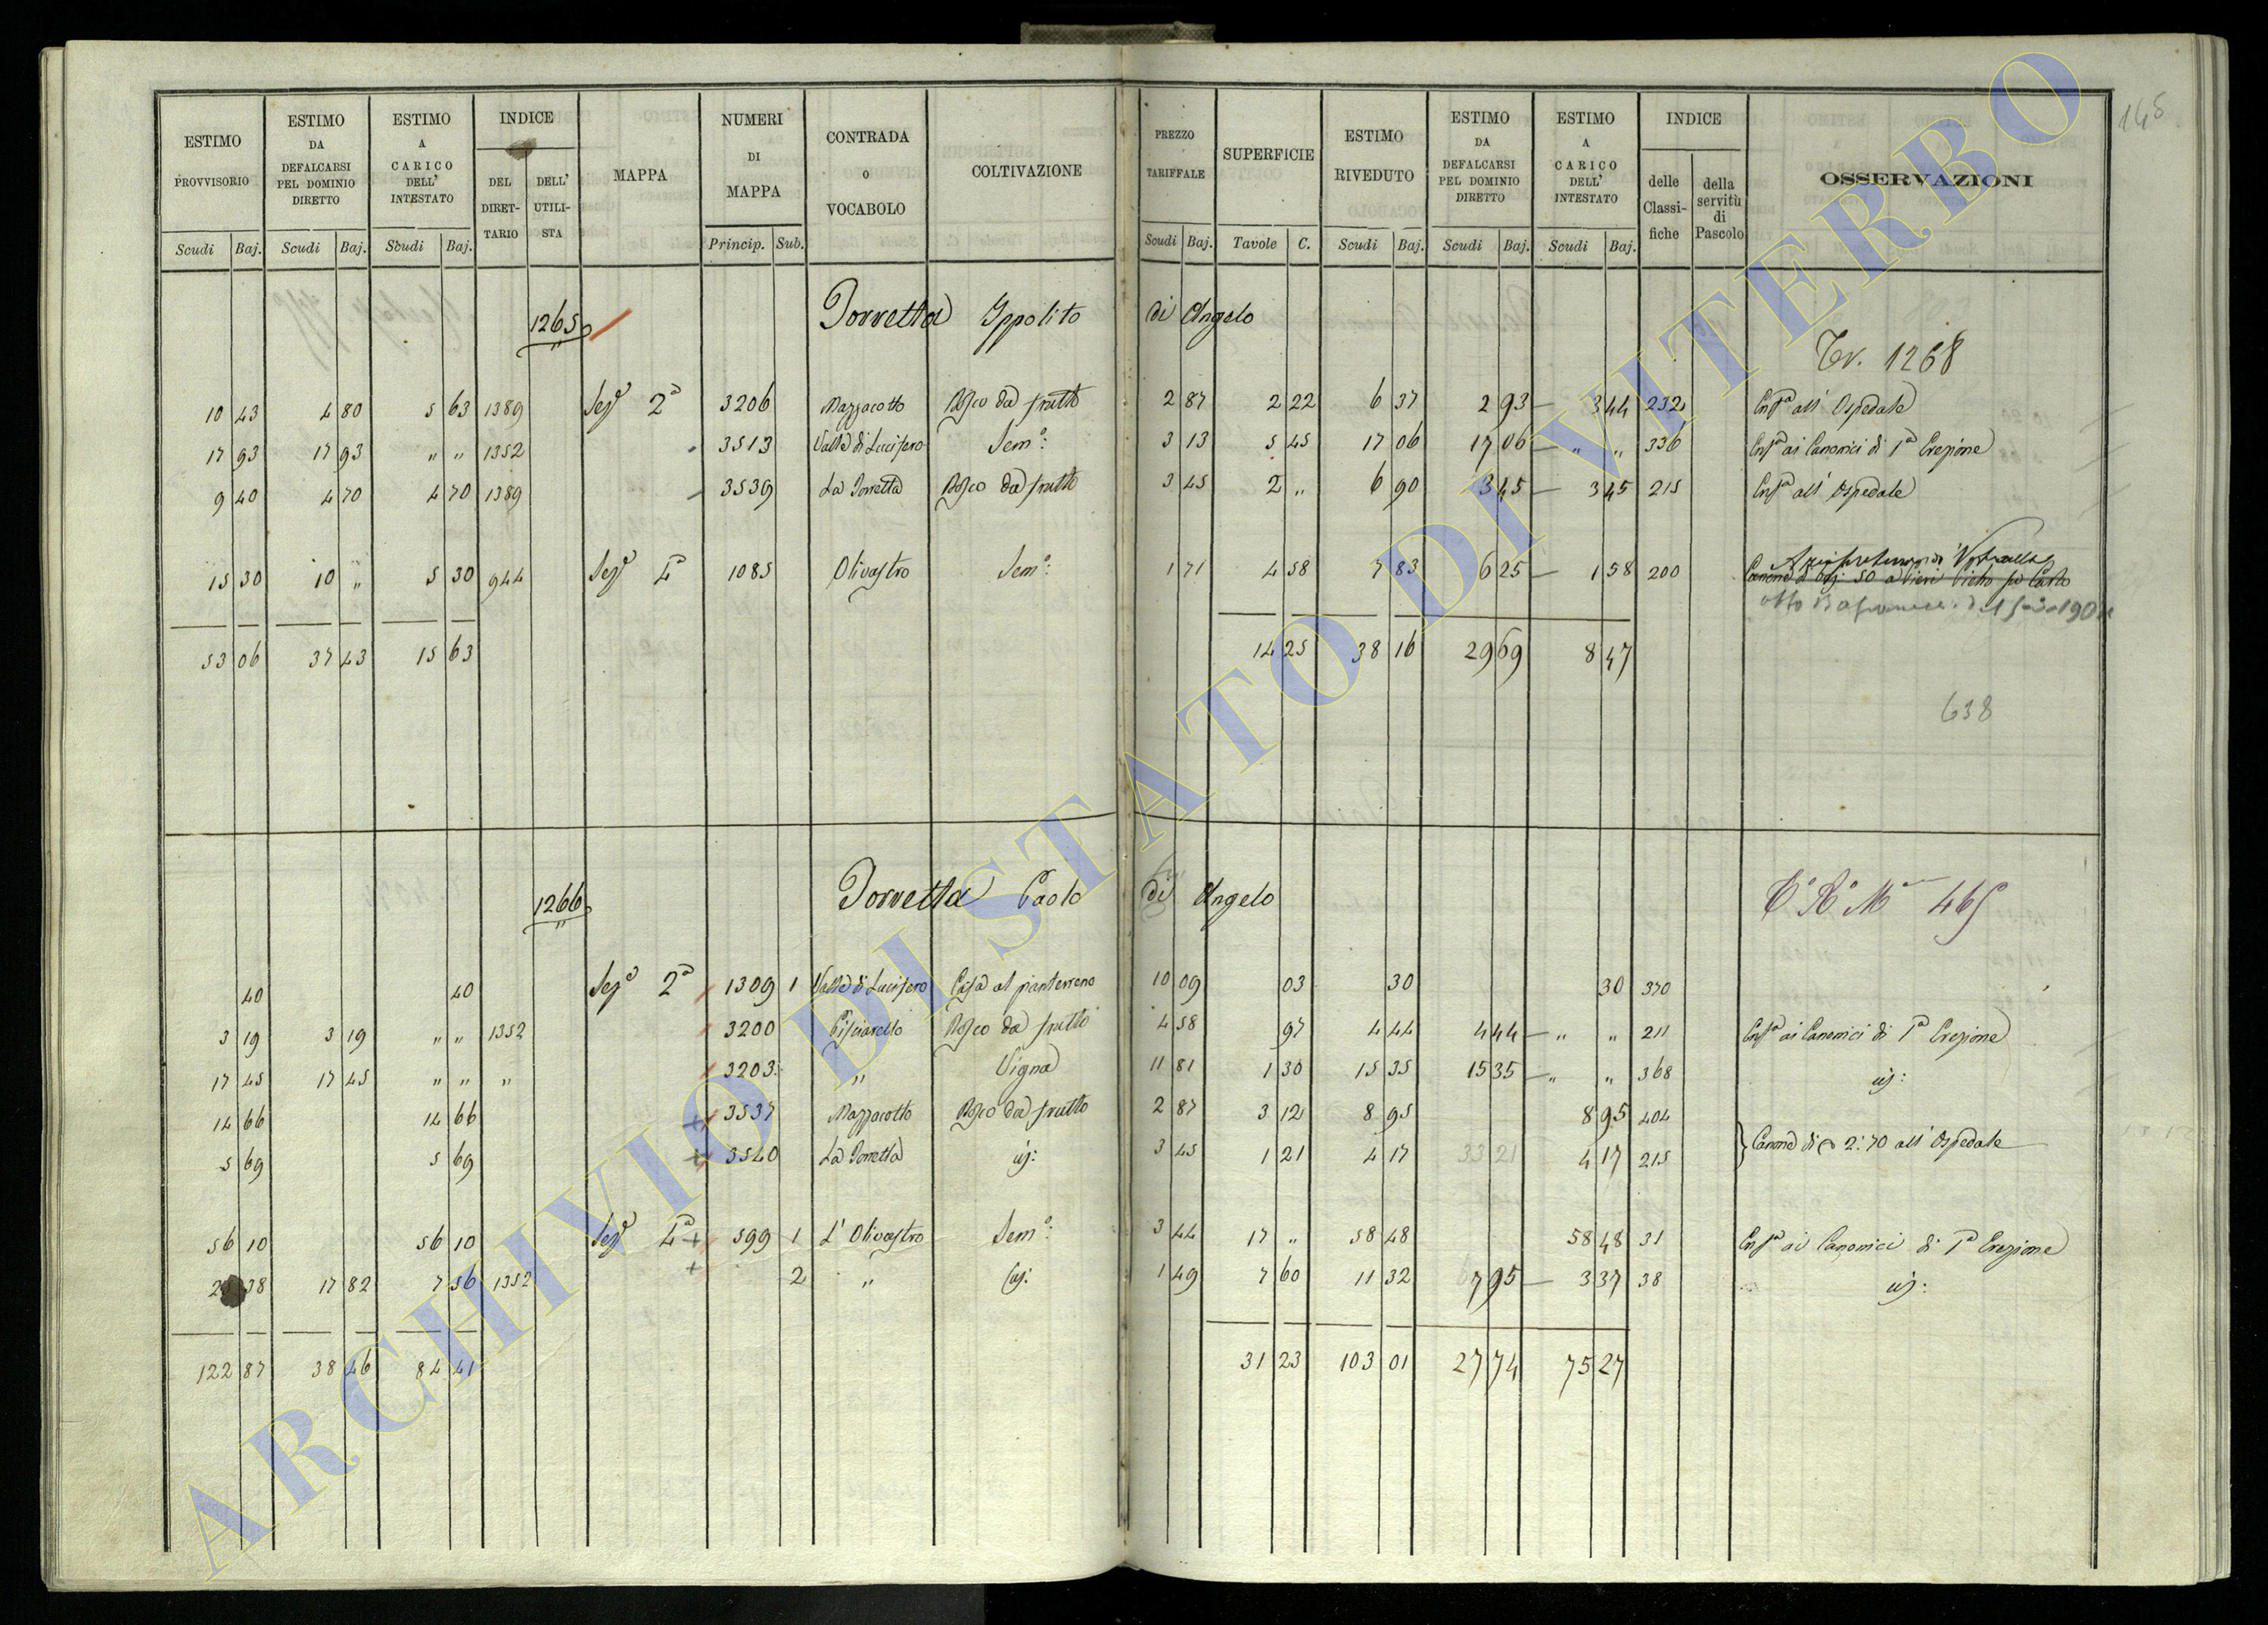 145
ESTIMO PROVVISORIO Scudi Baj. | ESTIMO DA DEFALCARSI PEL DOMINIO DIRETTO Scudi Baj. | ESTIMO A CARICO DELL' INTESTATO Scudi Baj. | INDICE DEL DIRET-TARIO | DELL' UTILI-STA | MAPPA | NUMERI DI MAPPA Princip. Sub. | CONTRADA O VOCABOLO | COLTIVAZIONE | PREZZO TARIFFALE Scudi Baj. | SUPERFICIE Tavole C. | ESTIMO RIVEDUTO Scudi Baj. | ESTIMO DA DEFALCARSI PEL DOMINIO DIRETTO Scudi Baj. | ESTIMO A CARICO DELL' INTESTATO Scudi Baj. | INDICE delle Classi-fiche | della servitù di Pascolo | OSSERVAZIONI
1265 Torretta Ippolito di Angelo
Tr. 1268
10 43 4 80 5 63 1389 Sez.e 2a 3206 Mazzacotto Bosco da frutto 2 87 2 22 6 37 2 93 — 3 44 232 Enf.a all' Ospedale
17 93 17 93 " " 1352 3513 Valle di Lucifero Sem.o: 3 13 5 45 17 06 17 06 — " " 336 Enf.a ai Canonici di 1a Erezione
9 40 4 70 4 70 1389 3539 La Torretta Bosco da frutto 3 45 2 " 6 90 3 45 — 3 45 215 Enf.a all' Ospedale
15 30 10 " 5 30 944 Sez.e 4a 1085 Olivastro Sem.o: 1 71 4 58 7 83 6 25 — 1 58 200 Canone di Baj: 50 a Pieri Pietro fu Carlo
53 06 37 43 15 63 14 25 38 16 29 69 8 47
638
1266 Torretta Paolo di Angelo
465
40 40 Sez.e 2a 1309 1 Valle di Lucifero Casa al pianterreno 10 09 03 30 30 370
3 19 3 19 " " 1352 3200 Pisciarello Bosco da frutto 4 58 97 4 44 4 44 — " " 211 Enf.a ai Canonici di 1a Erezione
17 45 17 45 " " " 3203 " Vigna 11 81 1 30 15 35 15 35 — " " 368 id:
14 66 14 66 + 3537 Mazzacotto Bosco da frutto 2 87 3 12 8 95 8 95 404
5 69 5 69 + 3540 La Torretta id: 3 45 1 21 4 17 33 21 4 17 215 } Canone di 2:70 all' Ospedale
56 10 56 10 Sez.e 4a + 599 1 L' Olivastro Sem.o: 3 44 17 " 58 48 58 48 31 Enf.a ai Canonici di 1a Erezione
38 17 82 7 56 1352 + 2 " id: 1 49 7 60 11 32 7 95 — 3 37 38 id:
122 87 38 46 84 41 31 23 103 01 27 74 75 27
ARCHIVIO DI STATO DI VITERBO